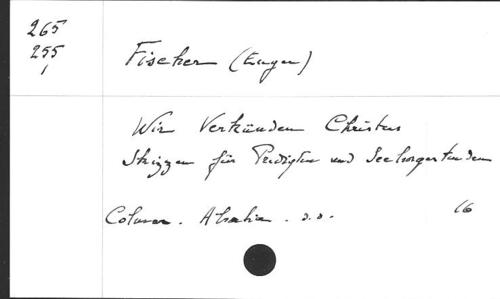 265
255
1
Fischer (Eugen)
Wir Verkünden Christus
Skizzen für Predigten und
Colmar. Alsatia. s.d. 16